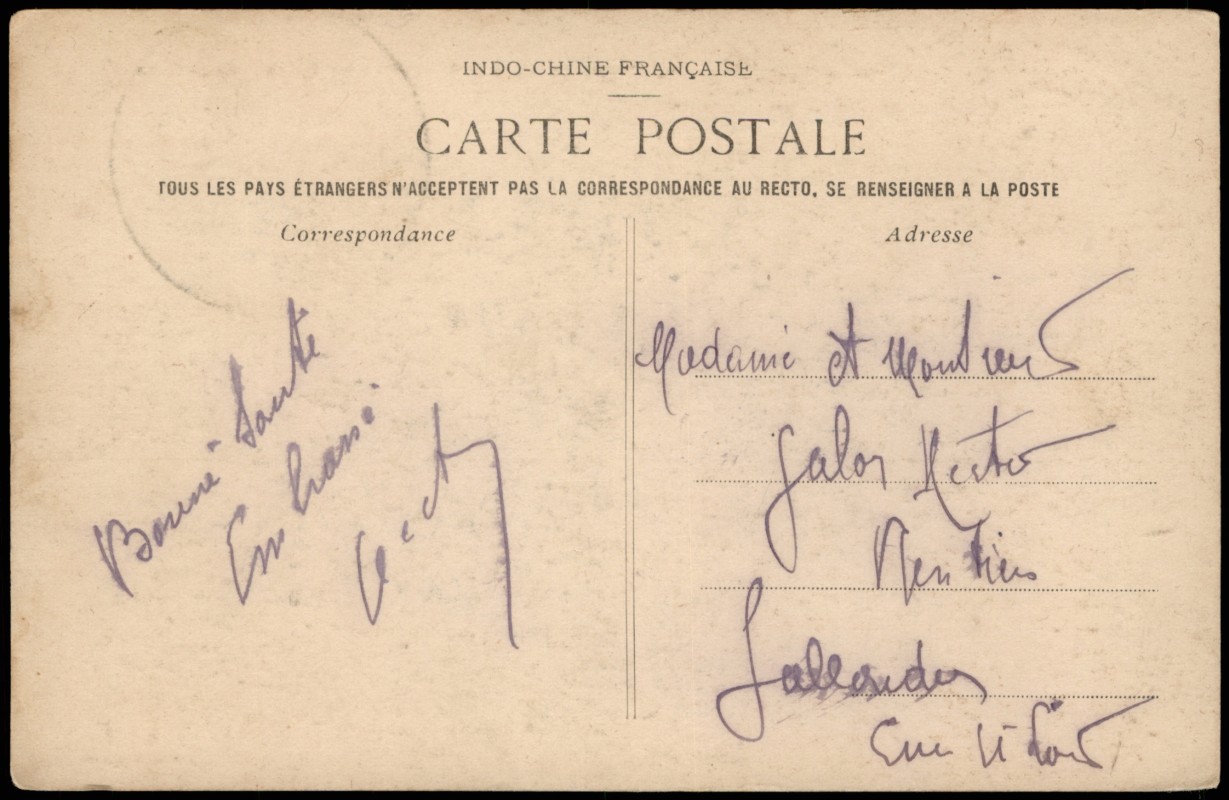 INDO-CHINE FRANÇAISE
CARTE POSTALE
TOUS LES PAYS ÉTRANGERS N'ACCEPTENT PAS LA CORRESPONDANCE AU RECTO, SE RENSEIGNER A LA POSTE
Correspondance
Bonne Santé
Adresse
Madame et Monsieur
Galos
Rentiers
Gallardon
Eure et Loir